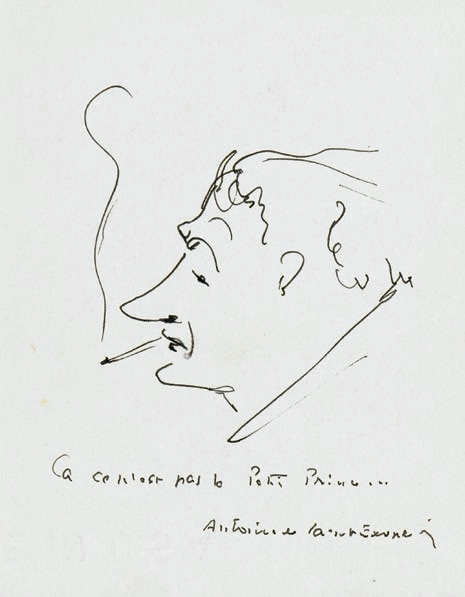 Ça ce n'est pas le Petit Prince...
Antoine de Saint Exupéry